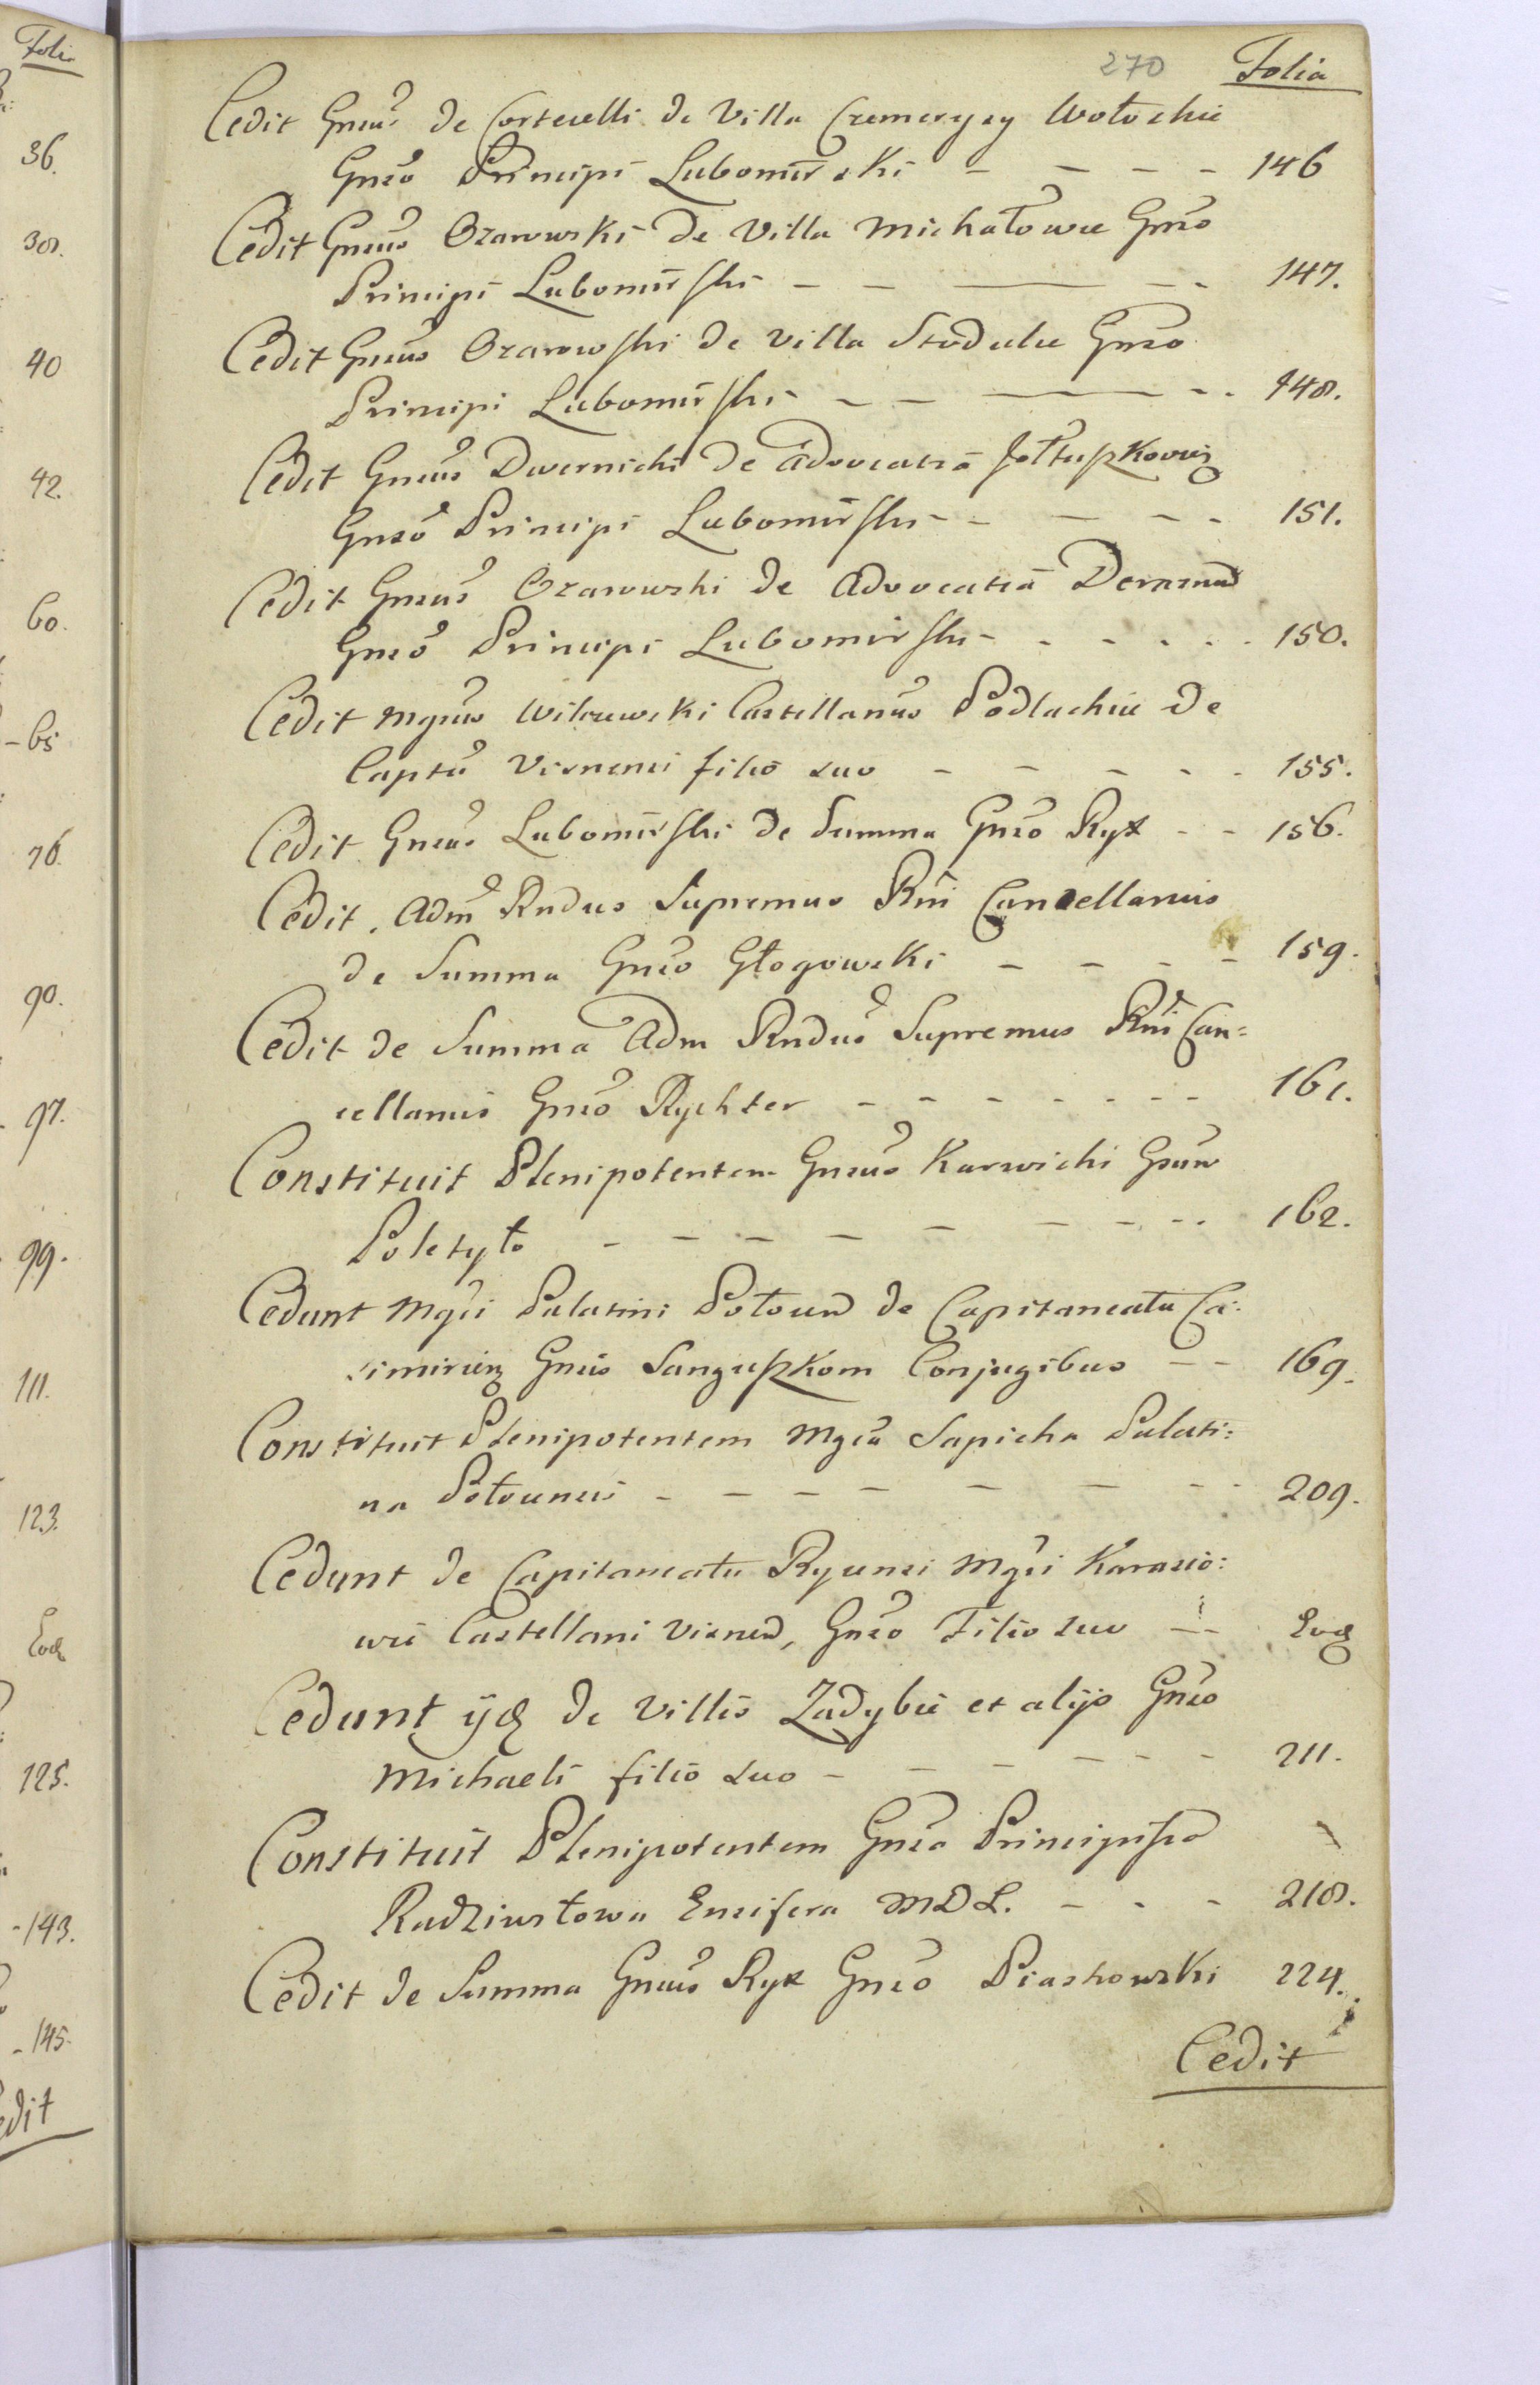 Folia
36.
38.
40
42.
60.
65
76.
90.
97.
99.
111.
123.
Eod
125.
143.
145.
270
Folia
Cedit Gnsus de Corticelli de Villa Czemeryzy Wołoskie
Gnso Principi Lubomirski - - - - 146
Cedit Gnsus Ozarowski de Villa Michałowce Gnso
Principi Lubomirski - - - - - 147.
Cedit Gnsus Ozarowski de Villa Stodulce Gnso
Principi Lubomirski - - - - - 148.
Cedit Gnsus Dwernicki de Advocatia
Gnso Principi Lubomirski - - - - 151.
Cedit Gnsus Ozarowski de Advocatia
Gnso Principi Lubomirski - - - - - 150.
Cedit Mgnus Wilczewski Castellanus Podlachiæ de
Captu Visnensi filio suo - - - - - 155.
Cedit Gnsus Lubomirski de Summa Gnso Ryx - - 156.
Cedit Adm Rndus Supremus Rni Cancellarius
de Summa Gnso Głogowski - - - - 159.
Cedit de Summa Adm Rndus Supremus Rni Can=
cellarius Gnso Rychter - - - - - - - 161.
Constituit Plenipotentem Gnsus Karwicki Gsum
Poletyło - - - - - - - - - 162.
Cedunt Mgci Palatini Połocen de Capitaneatu Ca:
simirien Gnsis Sanguszkom Conjugibus - - 169.
Constituit Plenipotentem Mgca Sapieha Palati=
na Połocensis - - - - - - - - 209.
Cedunt de Capitaneatu Rycensi Mgci Karasio:
wie Castellani Visnen, Gnso Filio suo - - Eod
Cedunt ijd de Villis Zadybie et alijs Gnso
Michaeli filio suo - - - - - - 211.
Constituit Plenipotentem Gnsa Principissa
Radziwiłowa Ensifera M D L. - - - 218.
Cedit de Summa Gnsus Ryx Gnso Piaskowski 224.
Cedit